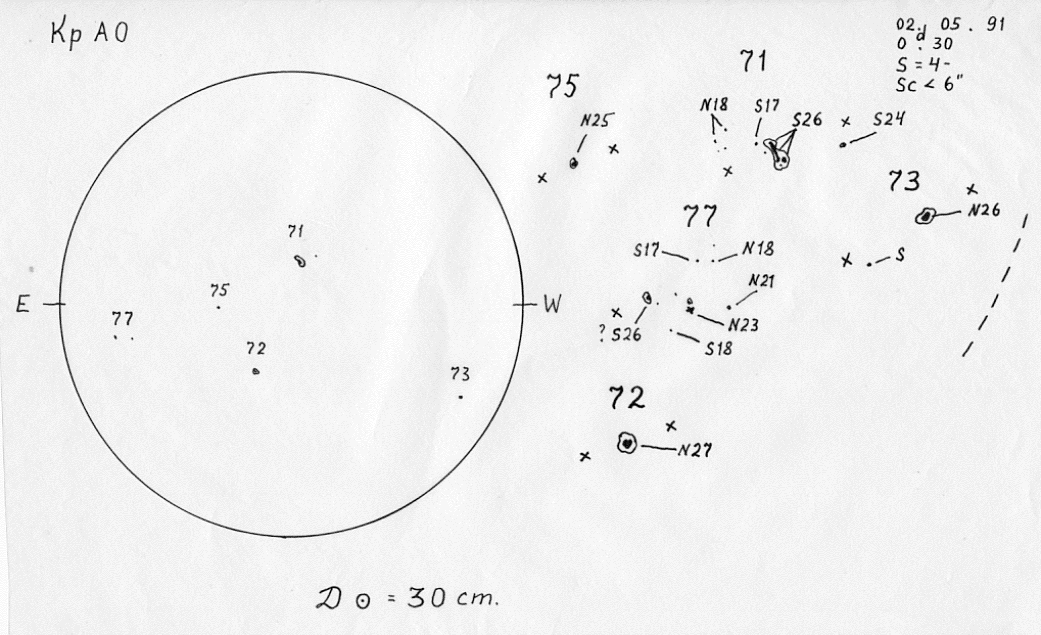 Kp AO
02. 05. 91
0d.30
S = 4-
Sc < 6"
71
75
N18 S17 S26 S24
N25
73
N26
77
S17 N18
S
N21
N23
? S26
S18
72
N27
71
75
E W
77
72
73
D ⊙ = 30 cm.